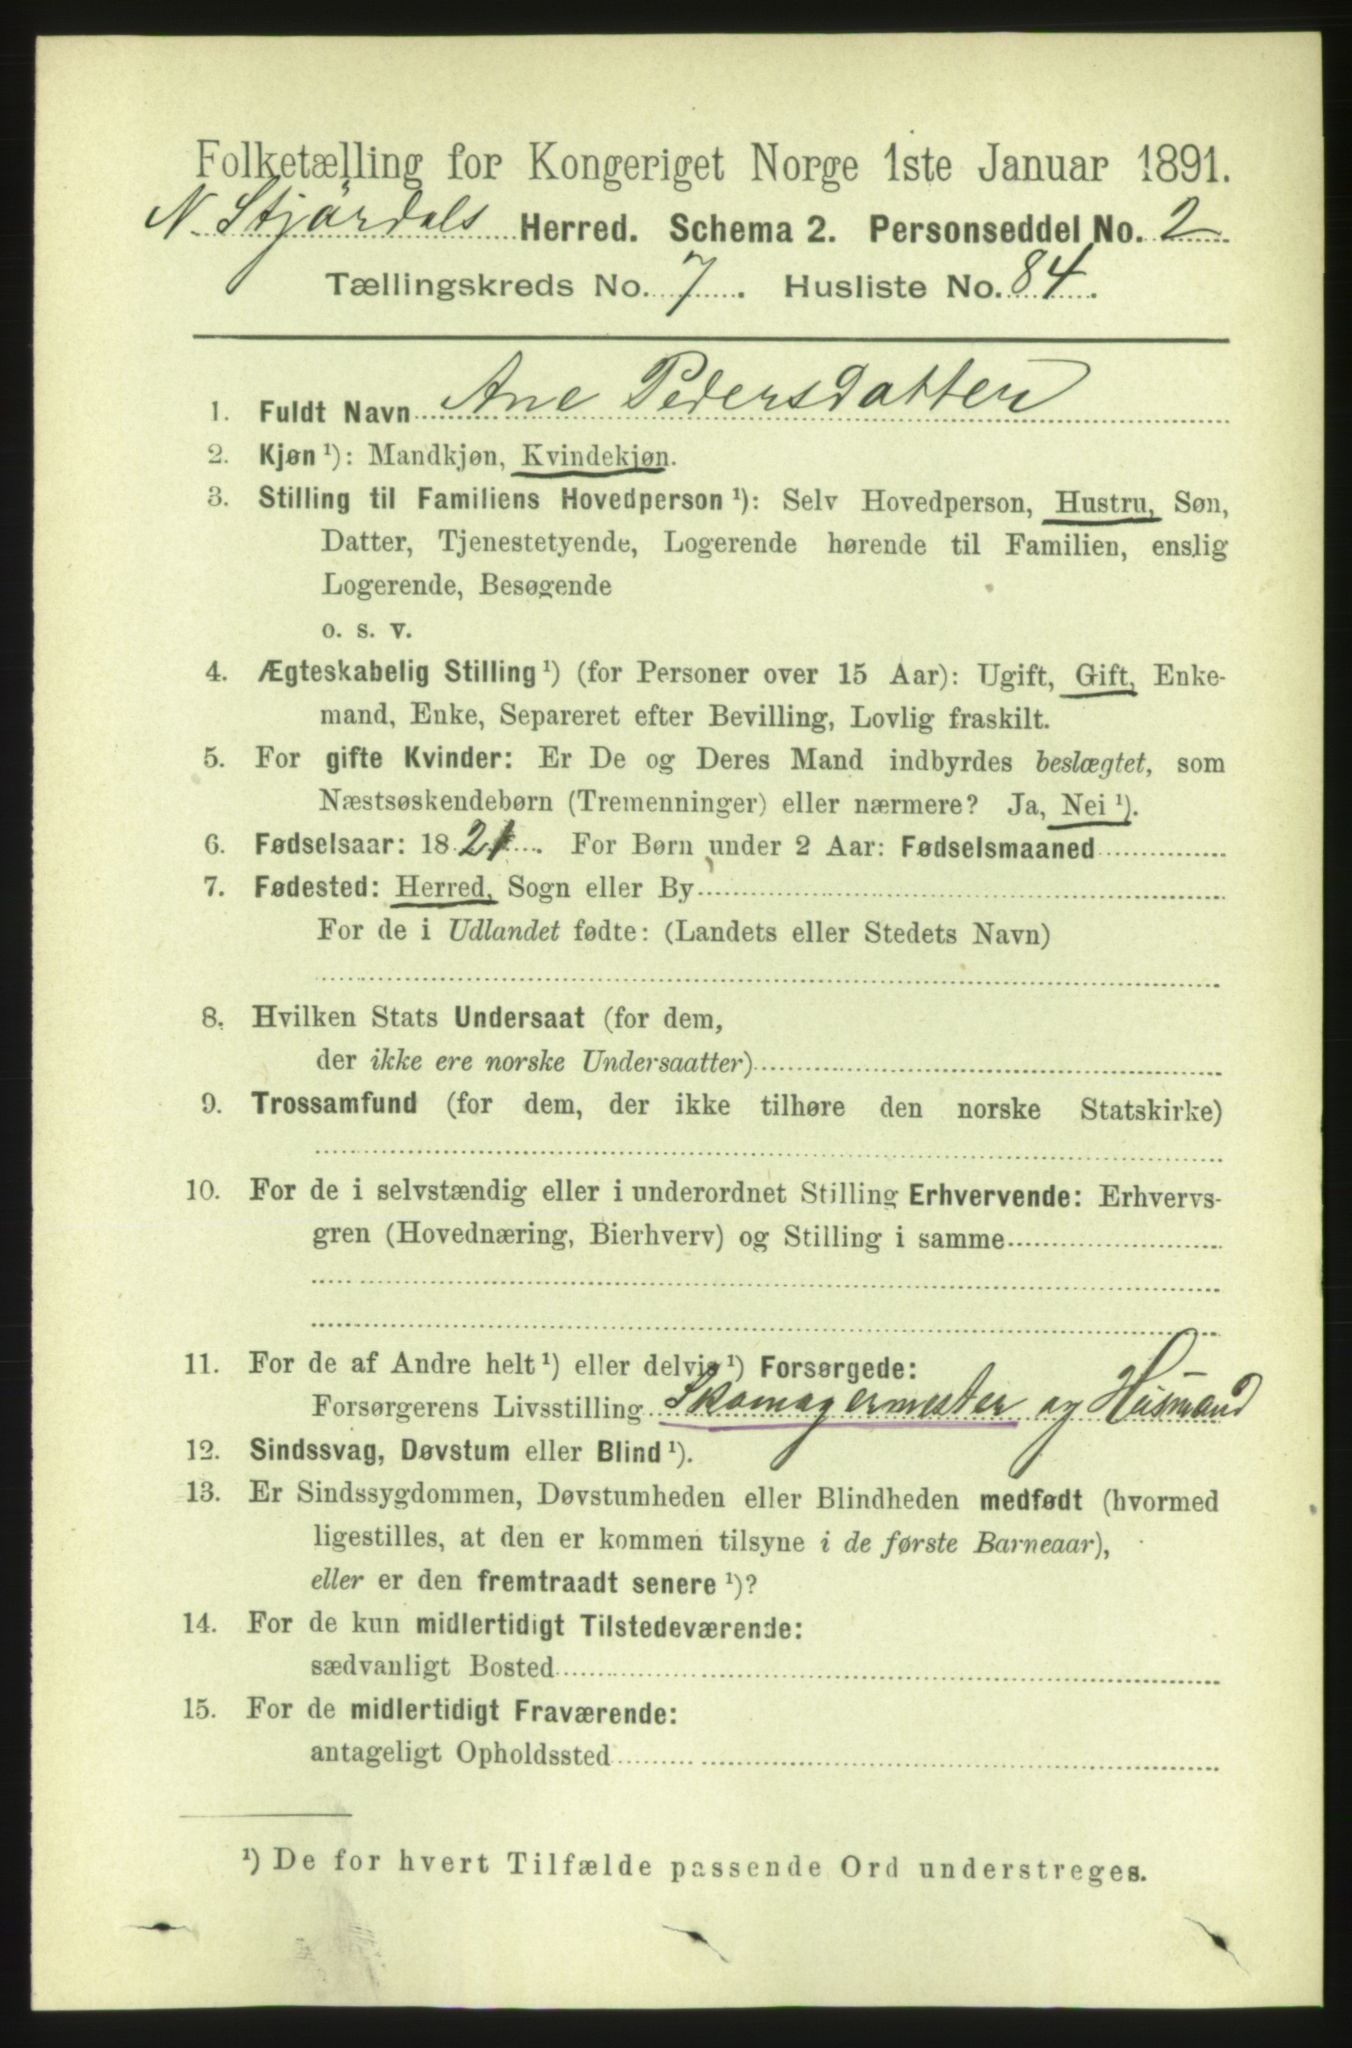 Folketælling for Kongeriget Norge 1ste Januar 1891.
N. Stjördals Herred. Schema 2. Personseddel No. 2
Tællingskreds No. 7. Husliste No. 84.
1. Fuldt Navn Ane Pedersdatter
2. Kjøn ¹): Mandkjøn, Kvindekjøn.
3. Stilling til Familiens Hovedperson ¹): Selv Hovedperson, Hustru, Søn,
Datter, Tjenestetyende, Logerende hørende til Familien, enslig
Logerende, Besøgende
o. s. v.
4. Ægteskabelig Stilling ¹) (for Personer over 15 Aar): Ugift, Gift, Enke-
mand, Enke, Separeret efter Bevilling, Lovlig fraskilt.
5. For gifte Kvinder: Er De og Deres Mand indbyrdes beslægtet, som
Næstsøskendebørn (Tremenninger) eller nærmere? Ja, Nei ¹).
6. Fødselsaar: 1821. For Børn under 2 Aar: Fødselsmaaned
7. Fødested: Herred, Sogn eller By
For de i Udlandet fødte: (Landets eller Stedets Navn)
8. Hvilken Stats Undersaat (for dem,
der ikke ere norske Undersaatter)
9. Trossamfund (for dem, der ikke tilhøre den norske Statskirke)
10. For de i selvstændig eller i underordnet Stilling Erhvervende: Erhvervs-
gren (Hovednæring, Bierhverv) og Stilling i samme
11. For de af Andre helt ¹) eller delvis ¹) Forsørgede:
Forsørgerens Livsstilling Skomagermester og Húsmand
12. Sindssvag, Døvstum eller Blind ¹).
13. Er Sindssygdommen, Døvstumheden eller Blindheden medfødt (hvormed
ligestilles, at den er kommen tilsyne i de første Barneaar),
eller er den fremtraadt senere ¹)?
14. For de kun midlertidigt Tilstedeværende:
sædvanligt Bosted
15. For de midlertidigt Fraværende:
antageligt Opholdssted
¹) De for hvert Tilfælde passende Ord understreges.